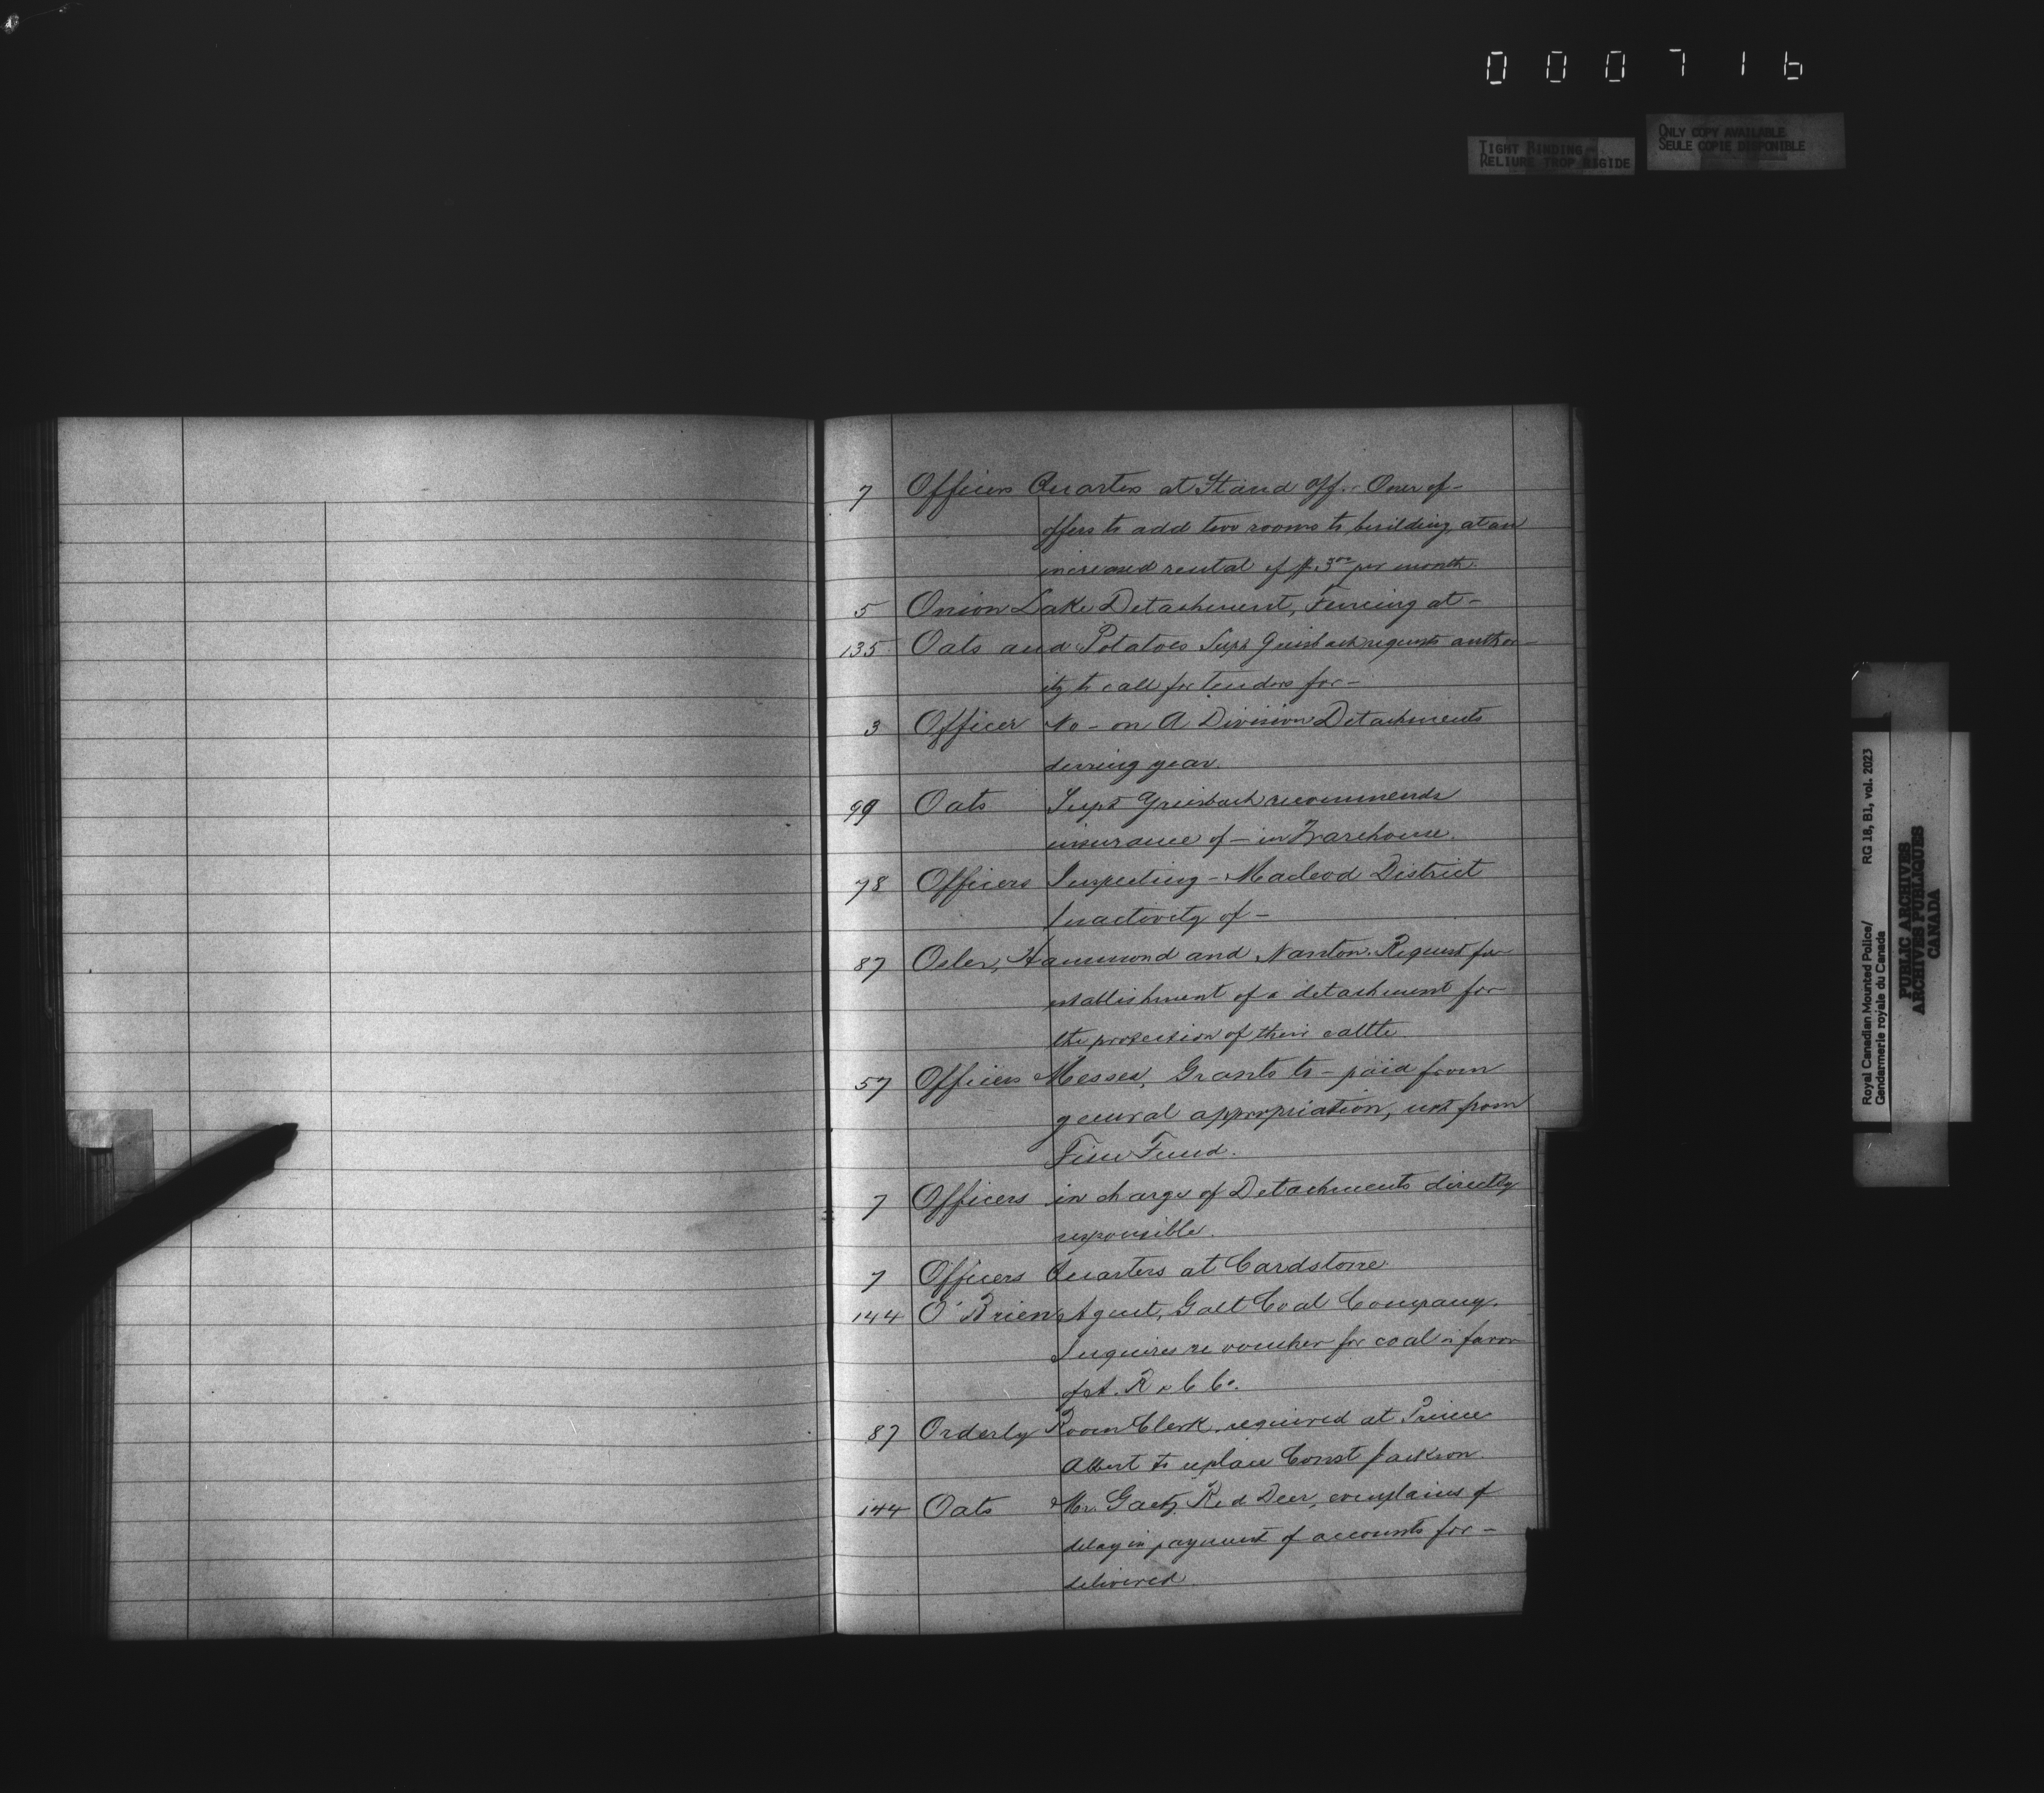 000716
TIGHT BINDING
RELIURE TROP RIGIDE
ONLY COPY AVAILABLE
SEULE COPIE DISPONIBLE
7 Officers Quarters at Stand Off. Owner of -
offers to add two rooms to building, at an
increased rental of $3.00 per month.
5 Onion Lake Detachment, Fencing at -
135 Oats and Potatoes Supt Griesbach requests author-
ity to call for tenders for -
3 Officer No - on A Division Detachments
during year.
99 Oats Supt Griesbach recommends
insurance of - in Warehouse.
78 Officers Inspecting - Macleod District
Inactivity of -
87 Osler, Hammond and Nanton. Request for
establishment of a detachment for
the protection of their cattle.
57 Officers Messes, Grants to - paid from
general appropriation, not from
Fine Fund.
7 Officers in charge of Detachments directly
responsible.
7 Officers Quarters at Cardstone.
144 O'Brien Agent, Galt Coal Company.
Inquires re voucher for coal in favor
of A. R & C Co.
87 Orderly Room Clerk, required at Prince
Albert to replace Const Jackson.
144 Oats Mr. Gaetz Red Deer, complains of
delay in payment of accounts for -
delivered.
Royal Canadian Mounted Police/ RG 18, B1, vol. 2023
Gendarmerie royale du Canada
PUBLIC ARCHIVES
ARCHIVES PUBLIQUES
CANADA